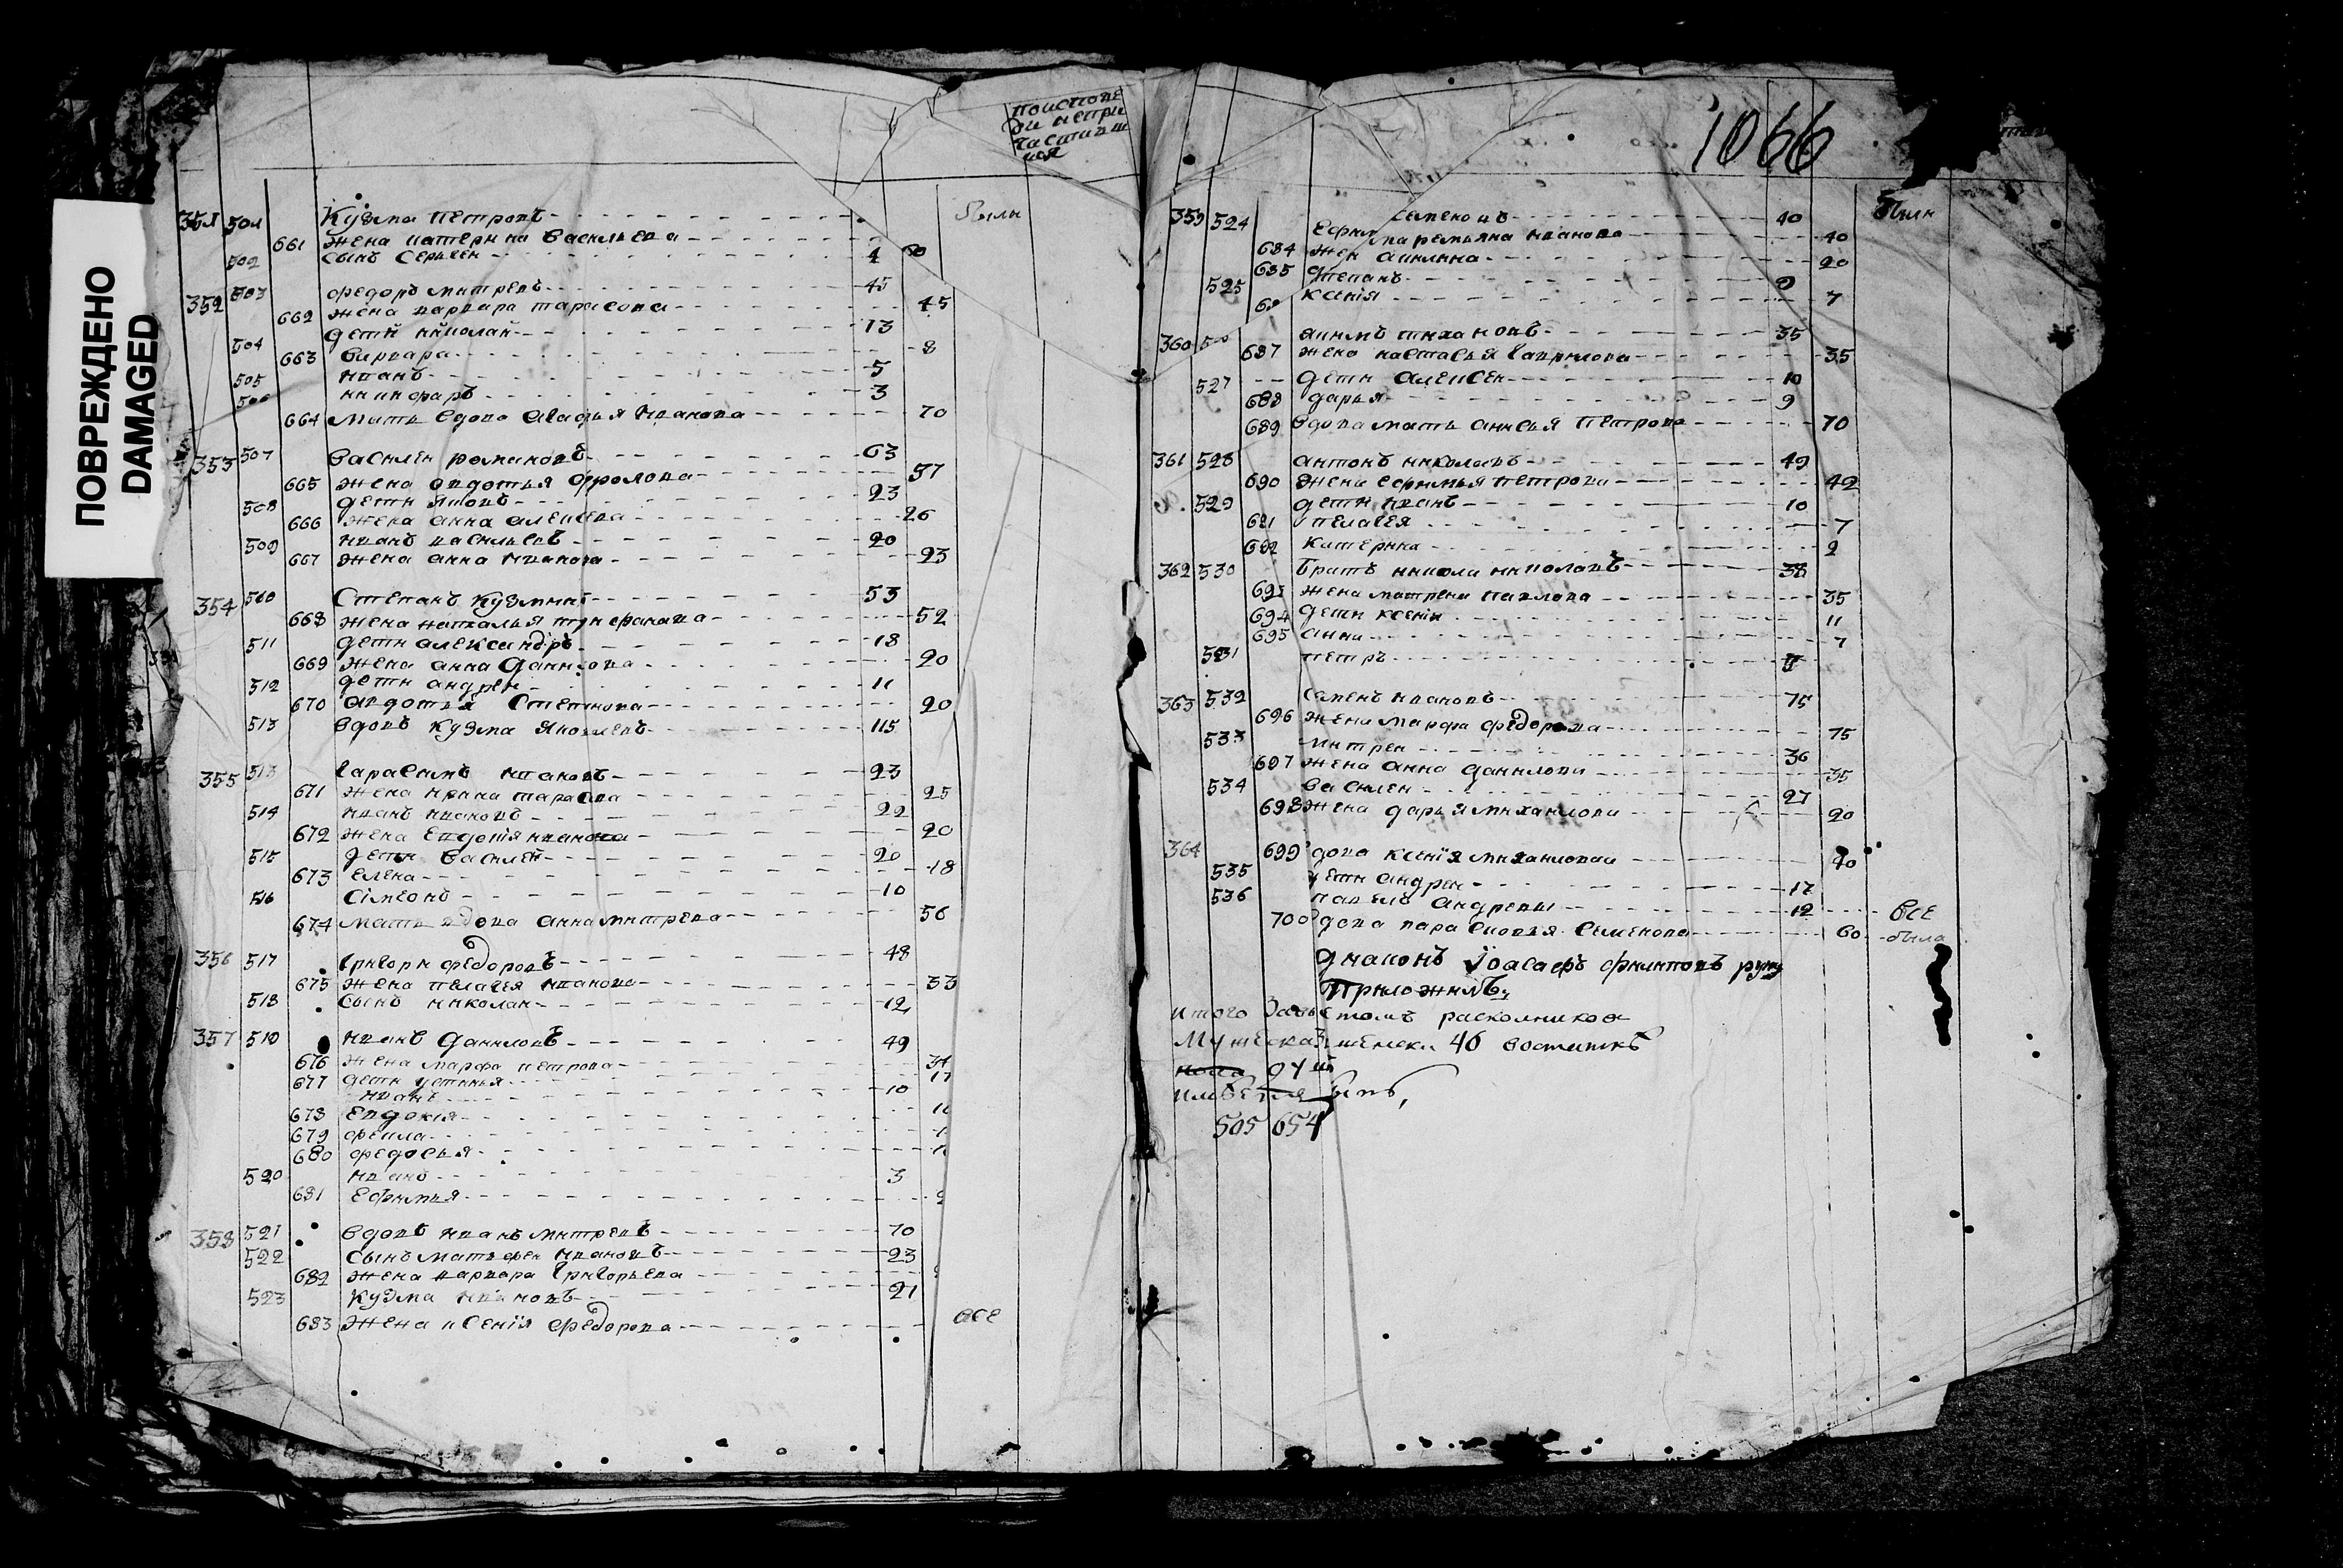 ПОВРЕЖДЕНО
DAMAGED
поиспове
ди непри
частивши
шся
351 501 Кузма Петровъ
были
661 жена катерина Васильева
502 сынъ Сергеи 4
352 503 федоръ митревъ 45
662 жена варвара тарасова 45
504 дети николай 13
663 Варвара 8
505 иванъ 5
506 никифаръ 3
664 мать вдова агафья иванова 70
353 507 Василеи романовъ 63
665 жена овдотья фролова 57
508 дети яковъ 23
666 жена анна алексева 26
509 иванъ васильевъ 20
667 жена анна иванова 23
354 510 Степанъ кузминъ 53
668 жена наталья 52
511 дети александръ 18
669 жена анна данилова 20
512 дети андреи 11
670 авдотья 20
513 вдовъ кузма яковлевъ 115
355 513 гарасимъ ивановъ 23
671 жена ирина тарасова 25
514 иванъ ивановъ 22
672 жена евдокия иванова 20
515 дети василей 20
673 елена 18
516 сімеонъ 10
674 мать вдова анна митрева 56
356 517 григори федоровъ 48
675 жена пелагея иванова 33
518 сынъ николаи 12
357 519 иванъ даниловъ 49
676 жена марфа петрова
677 дети устинья
иванъ 10
678 евдокия
679 фекла
680 федосья
520 иванъ 3
681 ефимья
358 521 вдовъ иванъ митревъ 70
522 сынъ матвфеи ивановъ 23
682 жена варвара григорьева
523 кузма ивановъ 21
683 жена ксенїя федорова
все
1066
359 524 Ефим семеновъ 40
были
684 жен маремьяна иванова 40
685 акилина 20
525 степанъ
ксенія 7
360 акимъ тихановъ 35
687 жена настасья гаврилова 35
527 дети алексеи 10
688 дарья 9
689 вдова мать анисья петрова 70
361 528 антонъ николавъ 49
690 жена ефимья петрова 42
529 дети иванъ 10
691 пелагея 7
692 катерина 2
362 530 братъ никола николавъ 38
693 жена матрена павлова 35
694 дети ксенія 11
695 анна 7
531 петръ
363 532 семенъ ивановъ 75
696 жена марфа федорова 75
533 митреи 36
697 жена анна данилова 35
534 василеи 27
698 жена дарья михаилова 20
364 699 дова ксенїя михаилова 40
535 дети андреи 17
536 павелъ андреевы 12
все
700 дова парасковья семенова 60
была
диаконъ їоасафъ филиповъ руку
приложилъ
итого расколников
46
душ
505 654